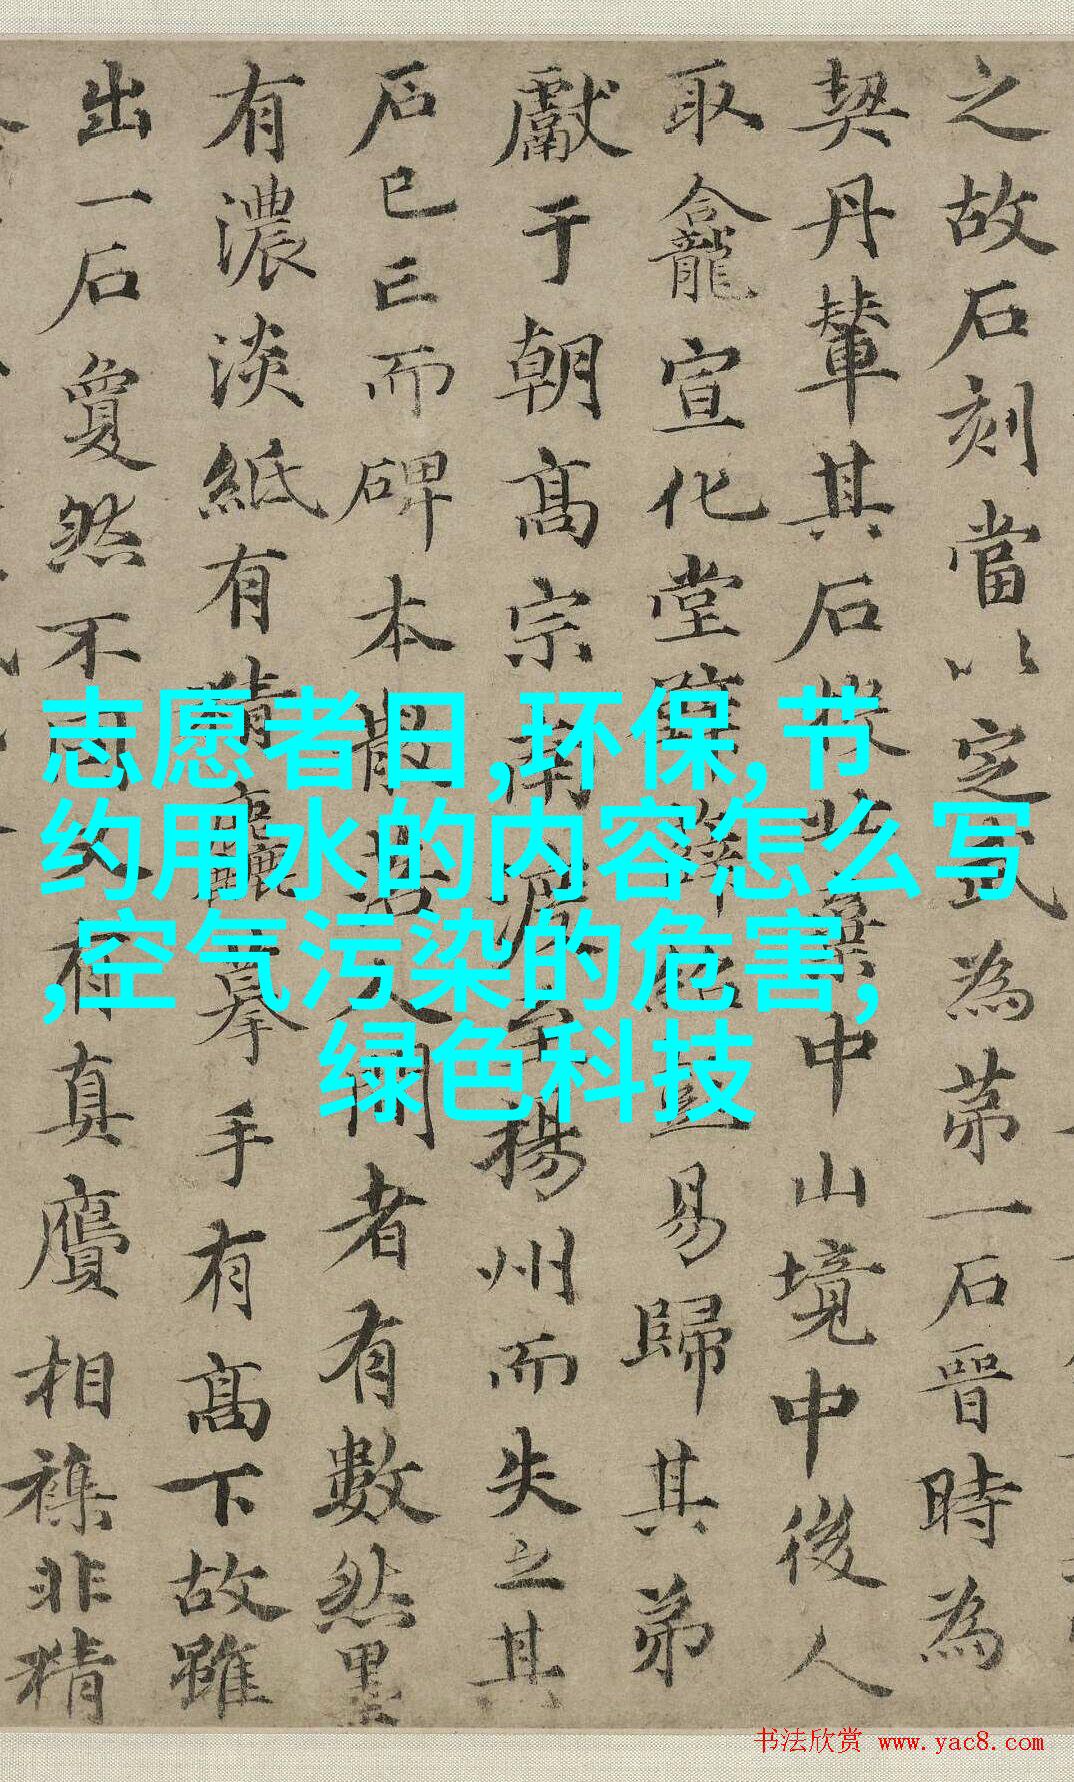 志愿者日,环保,节
约用水的内容怎么写
,空气污染的危害,
绿色科技
之故石刻當以定武為苐一石晉時為
契丹輦其石棄中山境中後人
取龕宣化堂壁薛紹易歸其弟
獻于朝髙宗南渡至揚州而失之其
石已亡而碑本散落人間者有數然墨
有濃淡紙有精麤摹手有髙下故雖
出一石敻然不同又有真贗相襍非精
书法欣赏 www.yac8.com